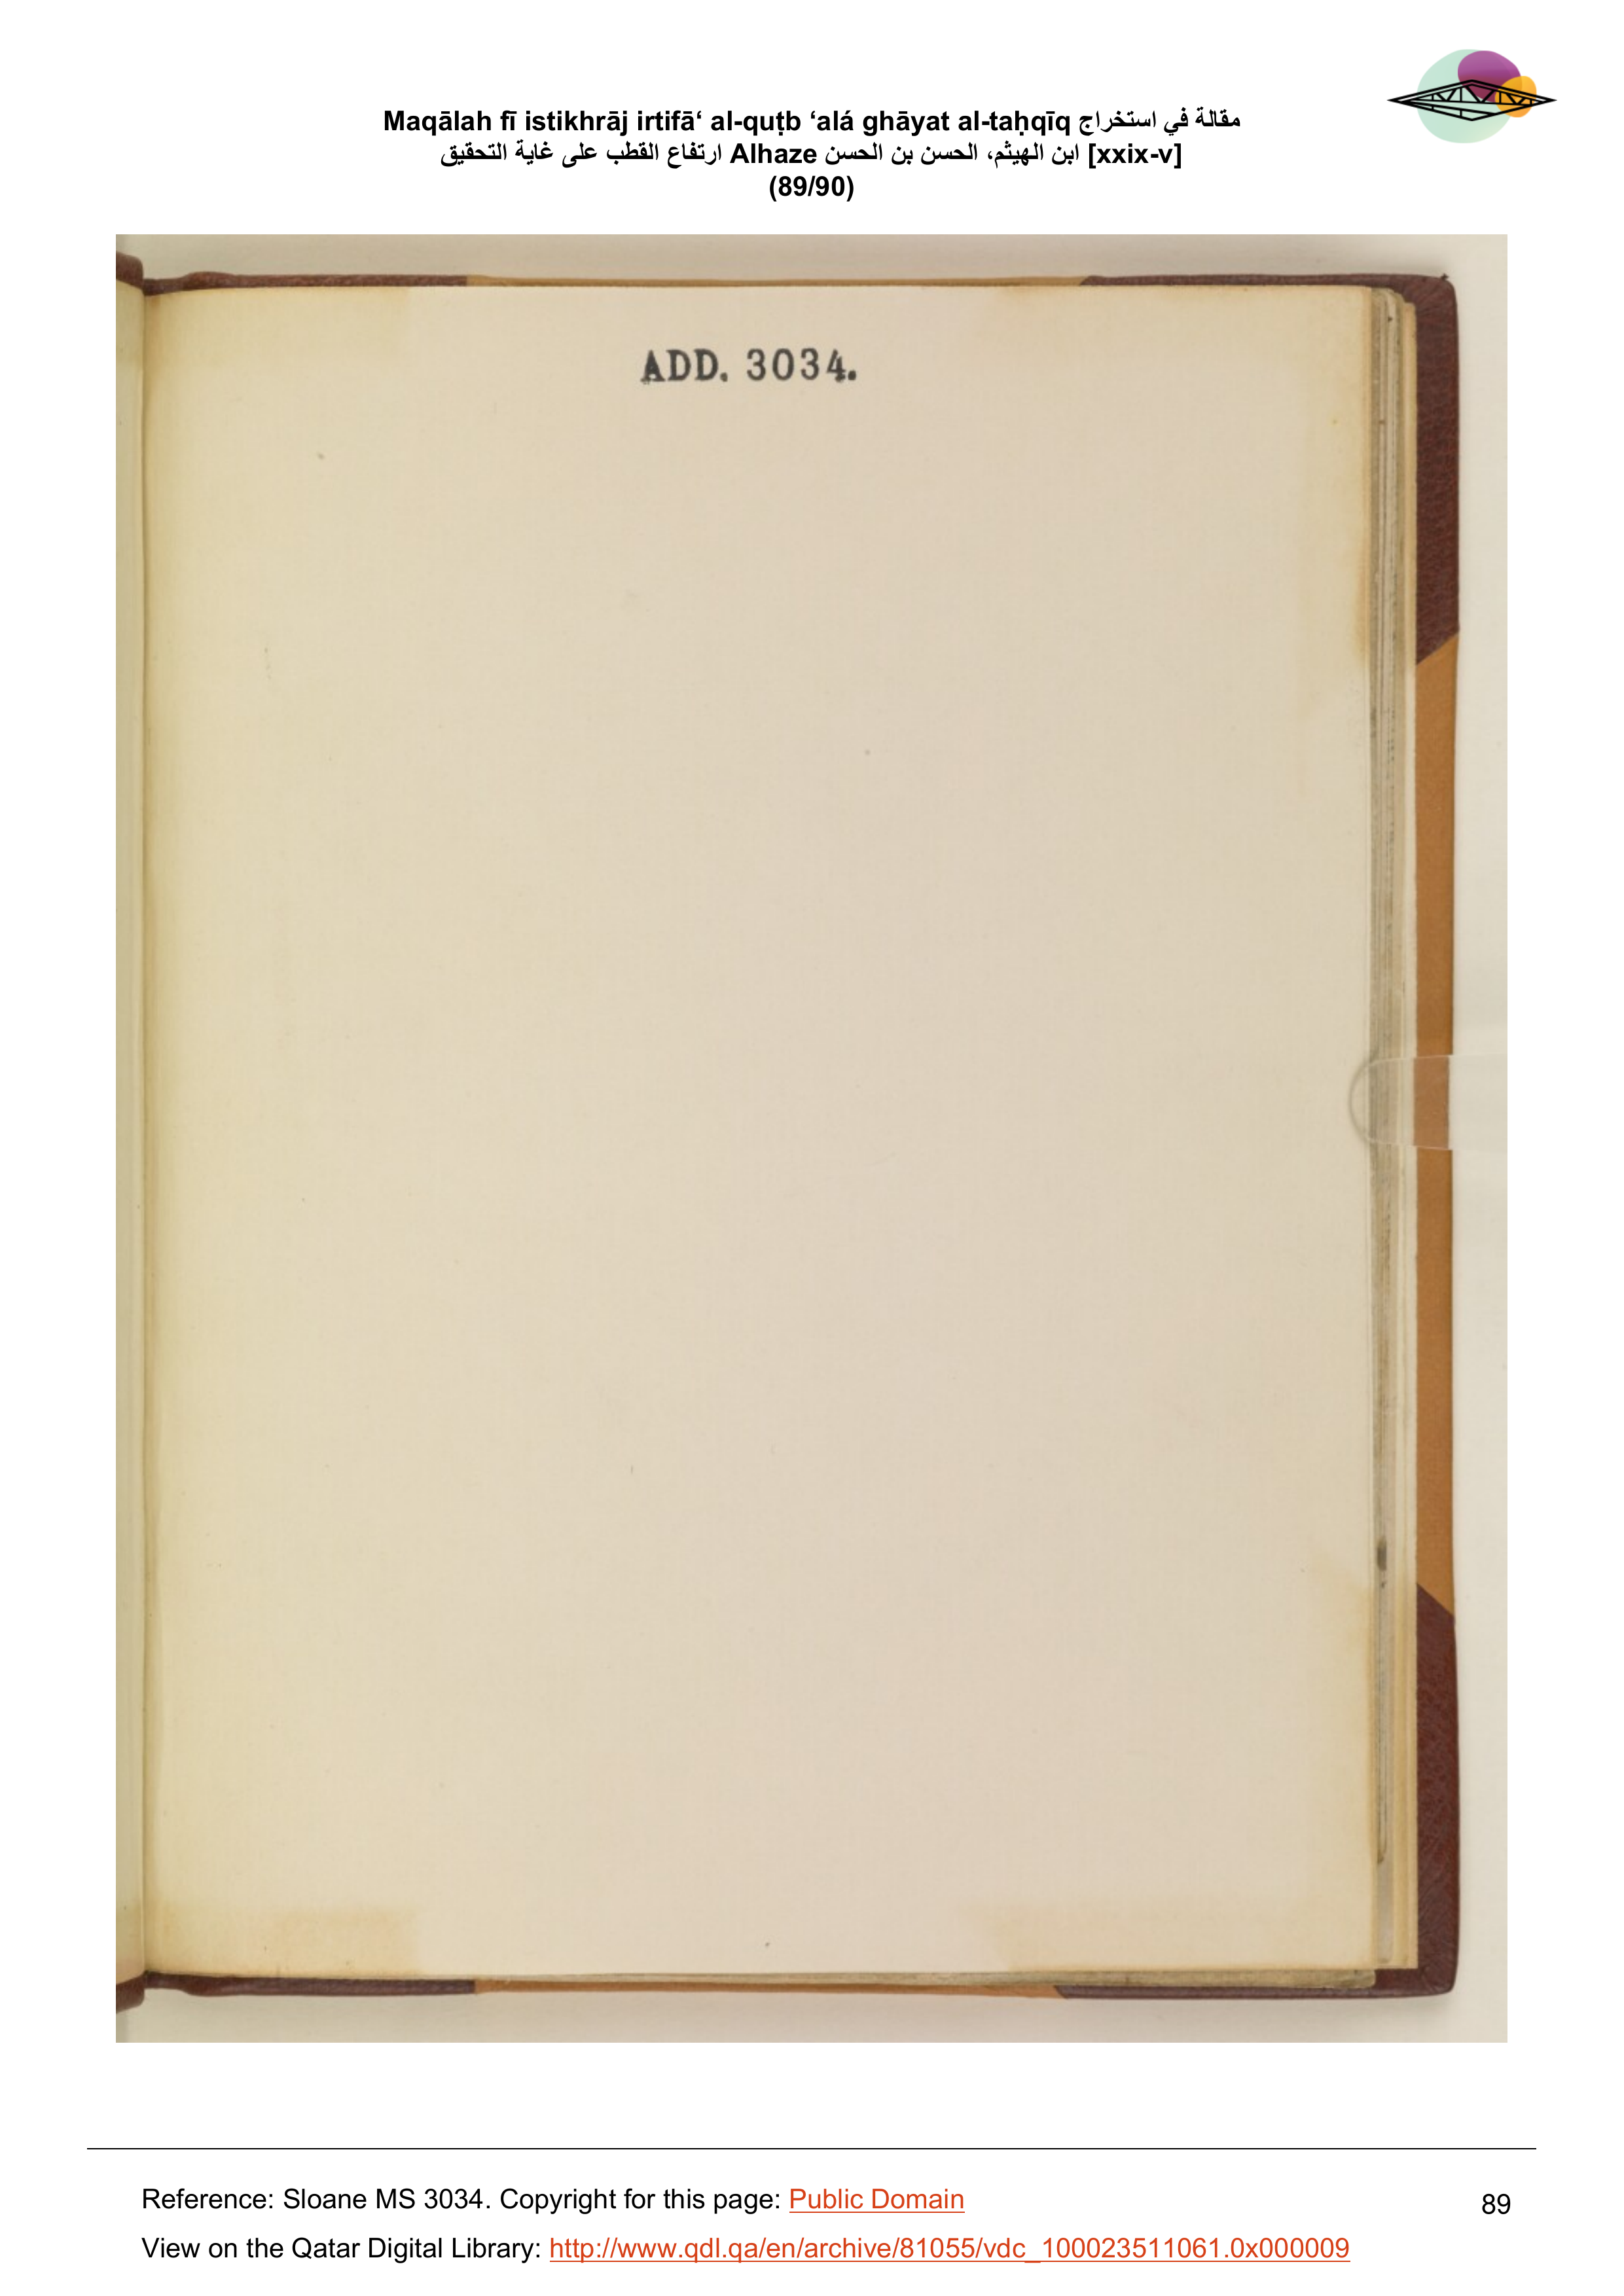 Maqālah fī istikhrāj irtifā‘ al-quṭb ‘alá ghāyat al-taḥqīq مقالة في استخراج
ارتفاع القطب على غاية التحقيق Alhaze ابن الهيثم، الحسن بن الحسن [xxix-v]
(89/90)
ADD. 3034.
Reference: Sloane MS 3034. Copyright for this page: Public Domain
89
View on the Qatar Digital Library: http://www.qdl.qa/en/archive/81055/vdc_100023511061.0x000009